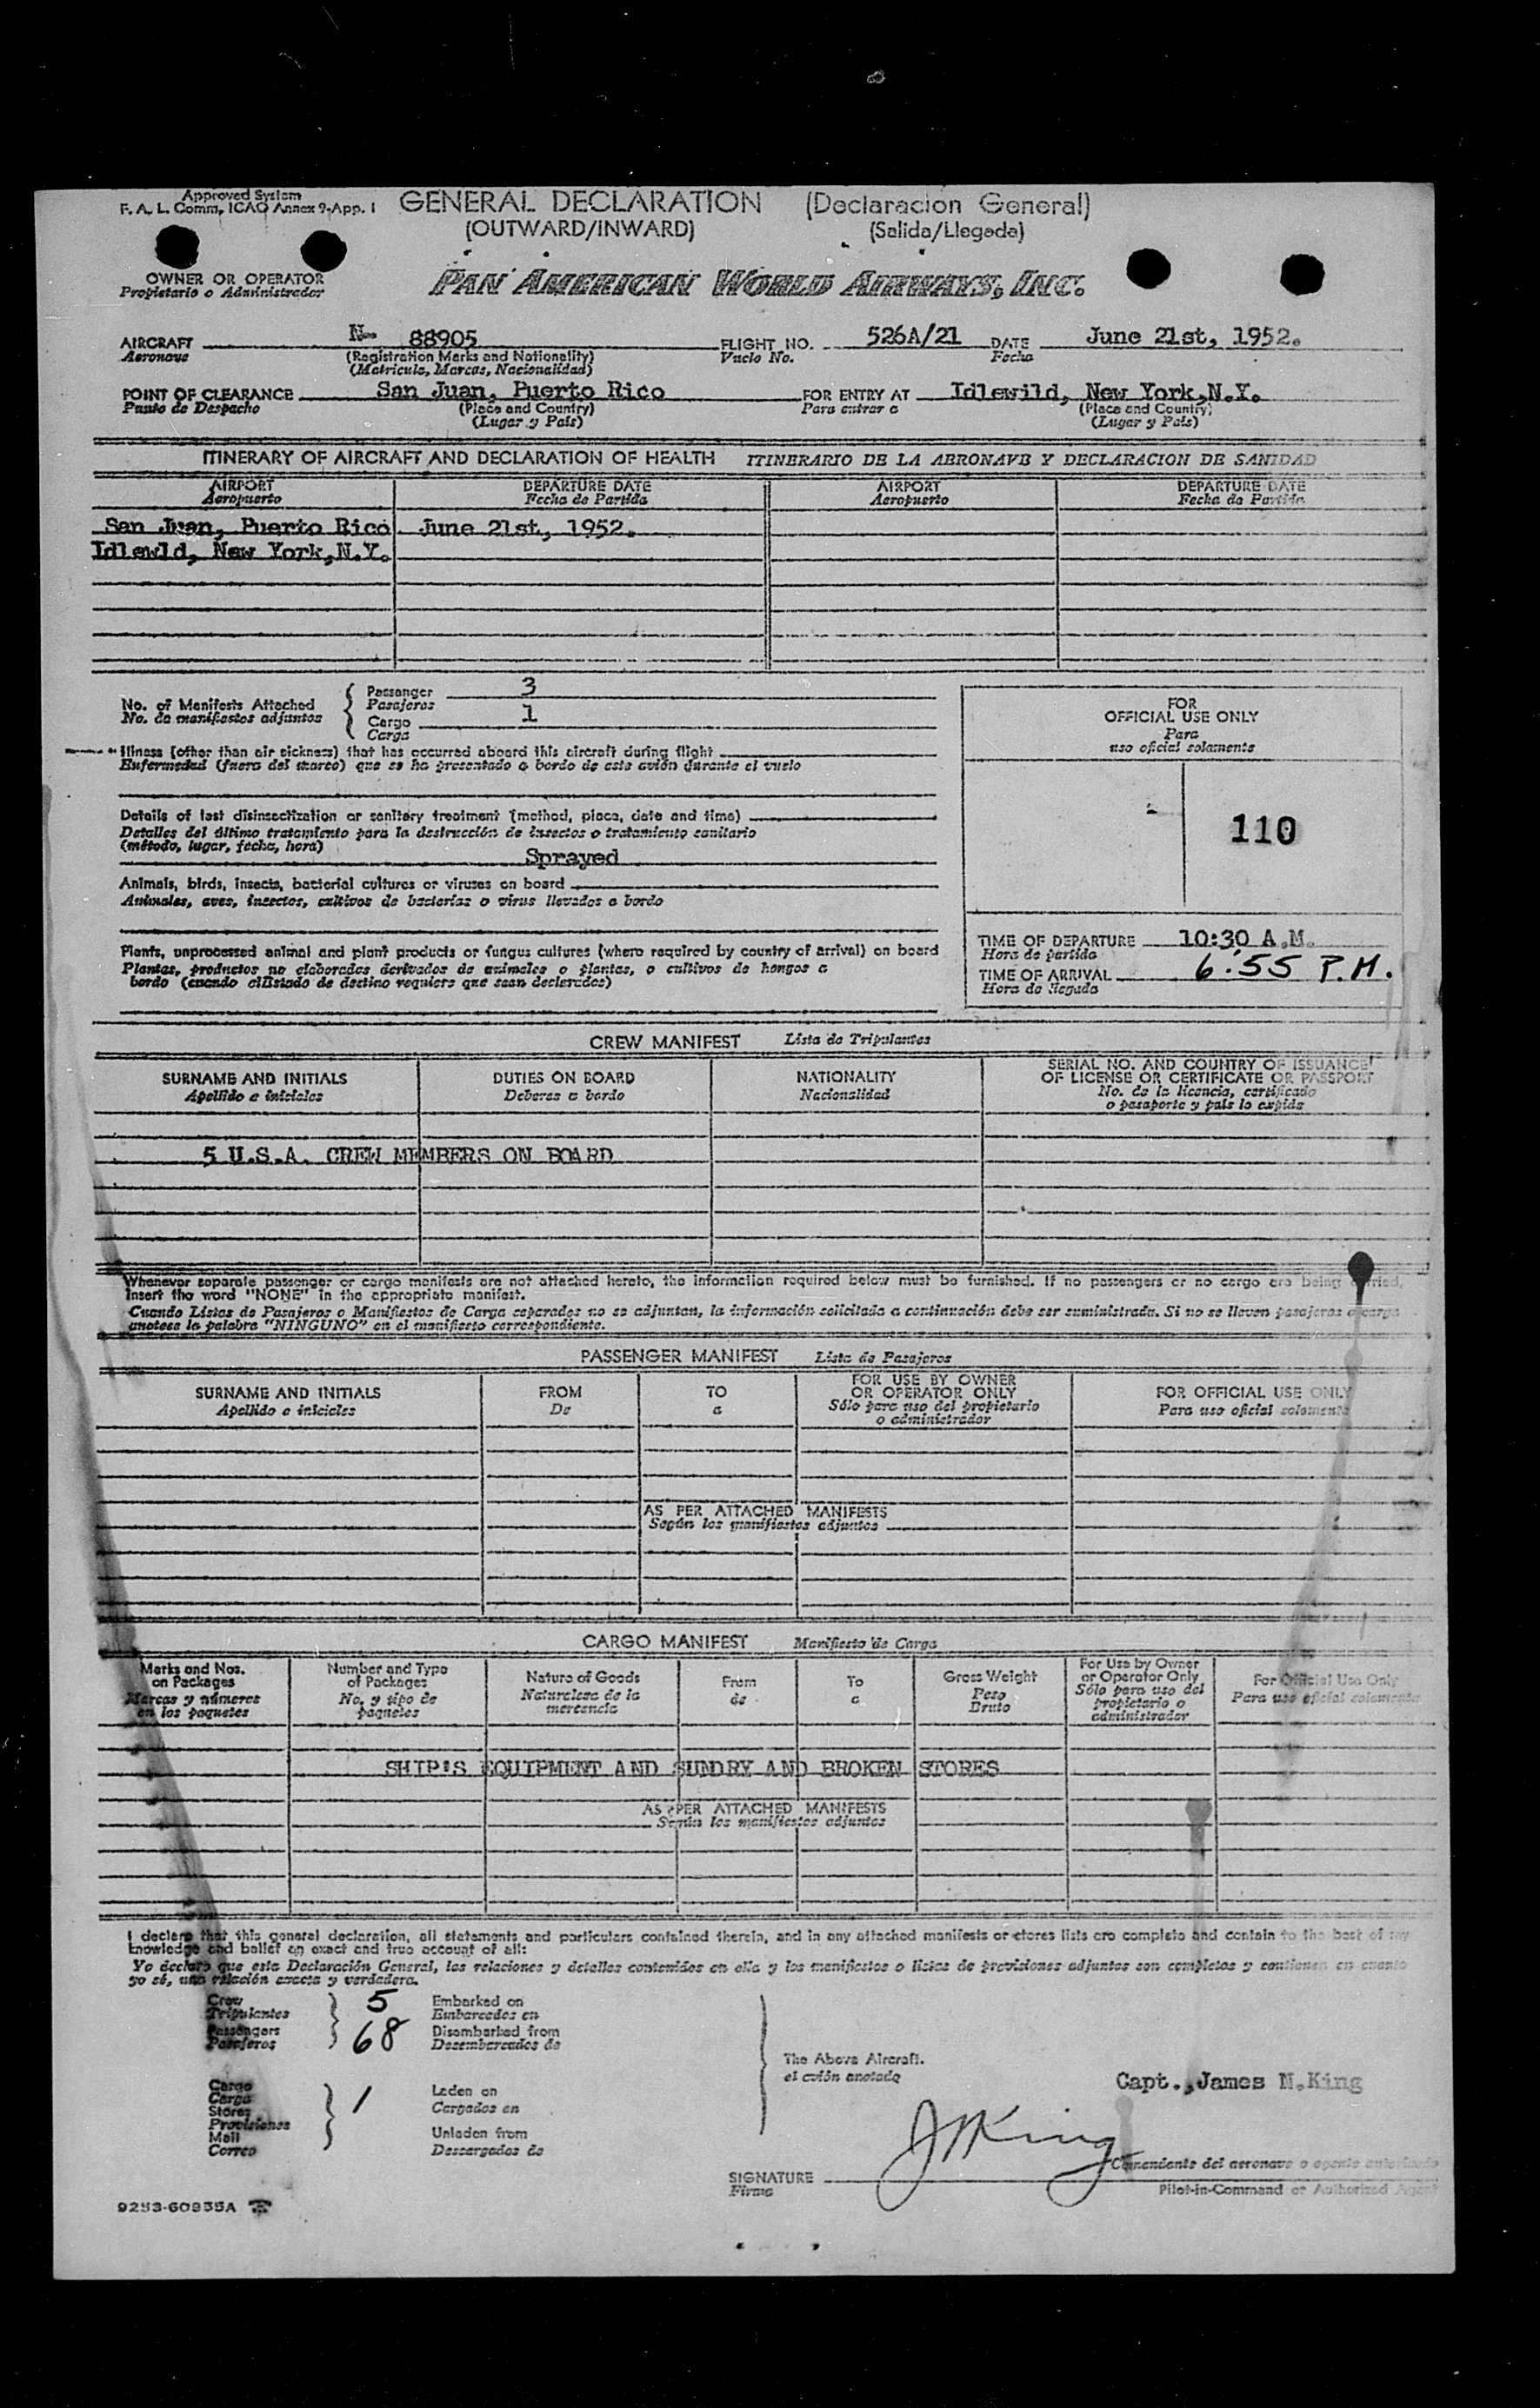 Approved System
F. A. L. Comm, ICAO Annex 9-App. I
GENERAL DECLARATION (Declaracion General)
(OUTWARD/INWARD) (Salida/Llegada)
OWNER OR OPERATOR
Propietario o Administrador
PAN AMERICAN WORLD AIRWAYS, INC.
AIRCRAFT N- 88905 FLIGHT NO. 526A/21 DATE June 21st, 1952.
Aeronave (Registration Marks and Nationality) Vuelo No. Fecha
(Matricula, Marcas, Nacionalidad)
POINT OF CLEARANCE San Juan, Puerto Rico FOR ENTRY AT Idlewild, New York,N.Y.
Punto de Despacho (Place and Country) Para entrar a (Place and Country)
(Lugar y País) (Lugar y País)
ITINERARY OF AIRCRAFT AND DECLARATION OF HEALTH ITINERARIO DE LA AERONAVE Y DECLARACION DE SANIDAD
AIRPORT DEPARTURE DATE AIRPORT DEPARTURE DATE
Aeropuerto Fecha de Partida Aeropuerto Fecha de Partida
San Juan, Puerto Rico June 21st, 1952.
Idlewld, New York,N.Y.
No. of Manifests Attached
No. de manifiestos adjuntos
Passenger 3
Pasajeros
Cargo 1
Carga
Illness (other than air sickness) that has occurred aboard this aircraft during flight
Enfermedad (fuera del mareo) que se ha presentado a bordo de este avión durante el vuelo
Details of last disinsectization or sanitary treatment (method, place, date and time)
Detalles del último tratamiento para la destrucción de insectos o tratamiento sanitario
(método, lugar, fecha, hora)
Sprayed
Animals, birds, insects, bacterial cultures or viruses on board
Animales, aves, insectos, cultivos de bacterias o virus llevados a bordo
Plants, unprocessed animal and plant products or fungus cultures (where required by country of arrival) on board
Plantas, productos no elaborados derivados de animales o plantas, o cultivos de hongos a
bordo (cuando el Estado de destino requiere que sean declarados)
FOR
OFFICIAL USE ONLY
Para
uso oficial solamente
110
TIME OF DEPARTURE 10:30 A.M.
Hora de partida
TIME OF ARRIVAL 6:55 P.M.
Hora de llegada
CREW MANIFEST Lista de Tripulantes
SURNAME AND INITIALS DUTIES ON BOARD NATIONALITY SERIAL NO. AND COUNTRY OF ISSUANCE
OF LICENSE OR CERTIFICATE OR PASSPORT
Apellido e iniciales Deberes a bordo Nacionalidad No. de la licencia, certificado
o pasaporte y país lo expide
5 U.S.A. CREW MEMBERS ON BOARD
Whenever separate passenger or cargo manifests are not attached hereto, the information required below must be furnished. If no passengers or no cargo are being carried,
insert the word "NONE" in the appropriate manifest.
Cuando Listas de Pasajeros o Manifiestos de Carga separados no se adjuntan, la información solicitada a continuación debe ser suministrada. Si no se llevan pasajeros o carga
anotese la palabra "NINGUNO" en el manifiesto correspondiente.
PASSENGER MANIFEST Lista de Pasajeros
SURNAME AND INITIALS FROM TO FOR USE BY OWNER
OR OPERATOR ONLY FOR OFFICIAL USE ONLY
Apellido e iniciales De a Sólo para uso del propietario
o administrador Para uso oficial solamente
AS PER ATTACHED MANIFESTS
Según los manifiestos adjuntos
CARGO MANIFEST Manifiesto de Carga
Marks and Nos.
on Packages
Marcas y números
en los paquetes
Number and Type
of Packages
No. y tipo de
paquetes
Nature of Goods
Naturaleza de la
mercancia
From
de
To
a
Gross Weight
Peso
Bruto
For Use by Owner
or Operator Only
Sólo para uso del
propietario o
administrador
For Official Use Only
Para uso oficial solamente
SHIP'S EQUIPMENT AND SUNDRY AND BROKEN STORES
AS PER ATTACHED MANIFESTS
Según los manifiestos adjuntos
I declare that this general declaration, all statements and particulars contained therein, and in any attached manifests or stores lists are complete and contain to the best of my
knowledge and belief an exact and true account of all:
Yo declaro que esta Declaración General, las relaciones y detalles contenidos en ella y los manifiestos o listas de provisiones adjuntos son completos y contienen en cuanto
yo sé, una relación exacta y verdadera.
Crew 5 Embarked on
Tripulantes Embarcados en
Passengers 68 Disembarked from
Pasajeros Desembarcados de
The Above Aircraft.
el avión anotado
Cargo
Carga
Stores
Provisiones
Mail
Correo
1
Laden on
Cargados en
Unladen from
Descargados de
Capt.,James N.King
JNKing
SIGNATURE
Firma
Comandante del aeronave o agente autorizado
Pilot-in-Command or Authorized Agent
9253-60935A